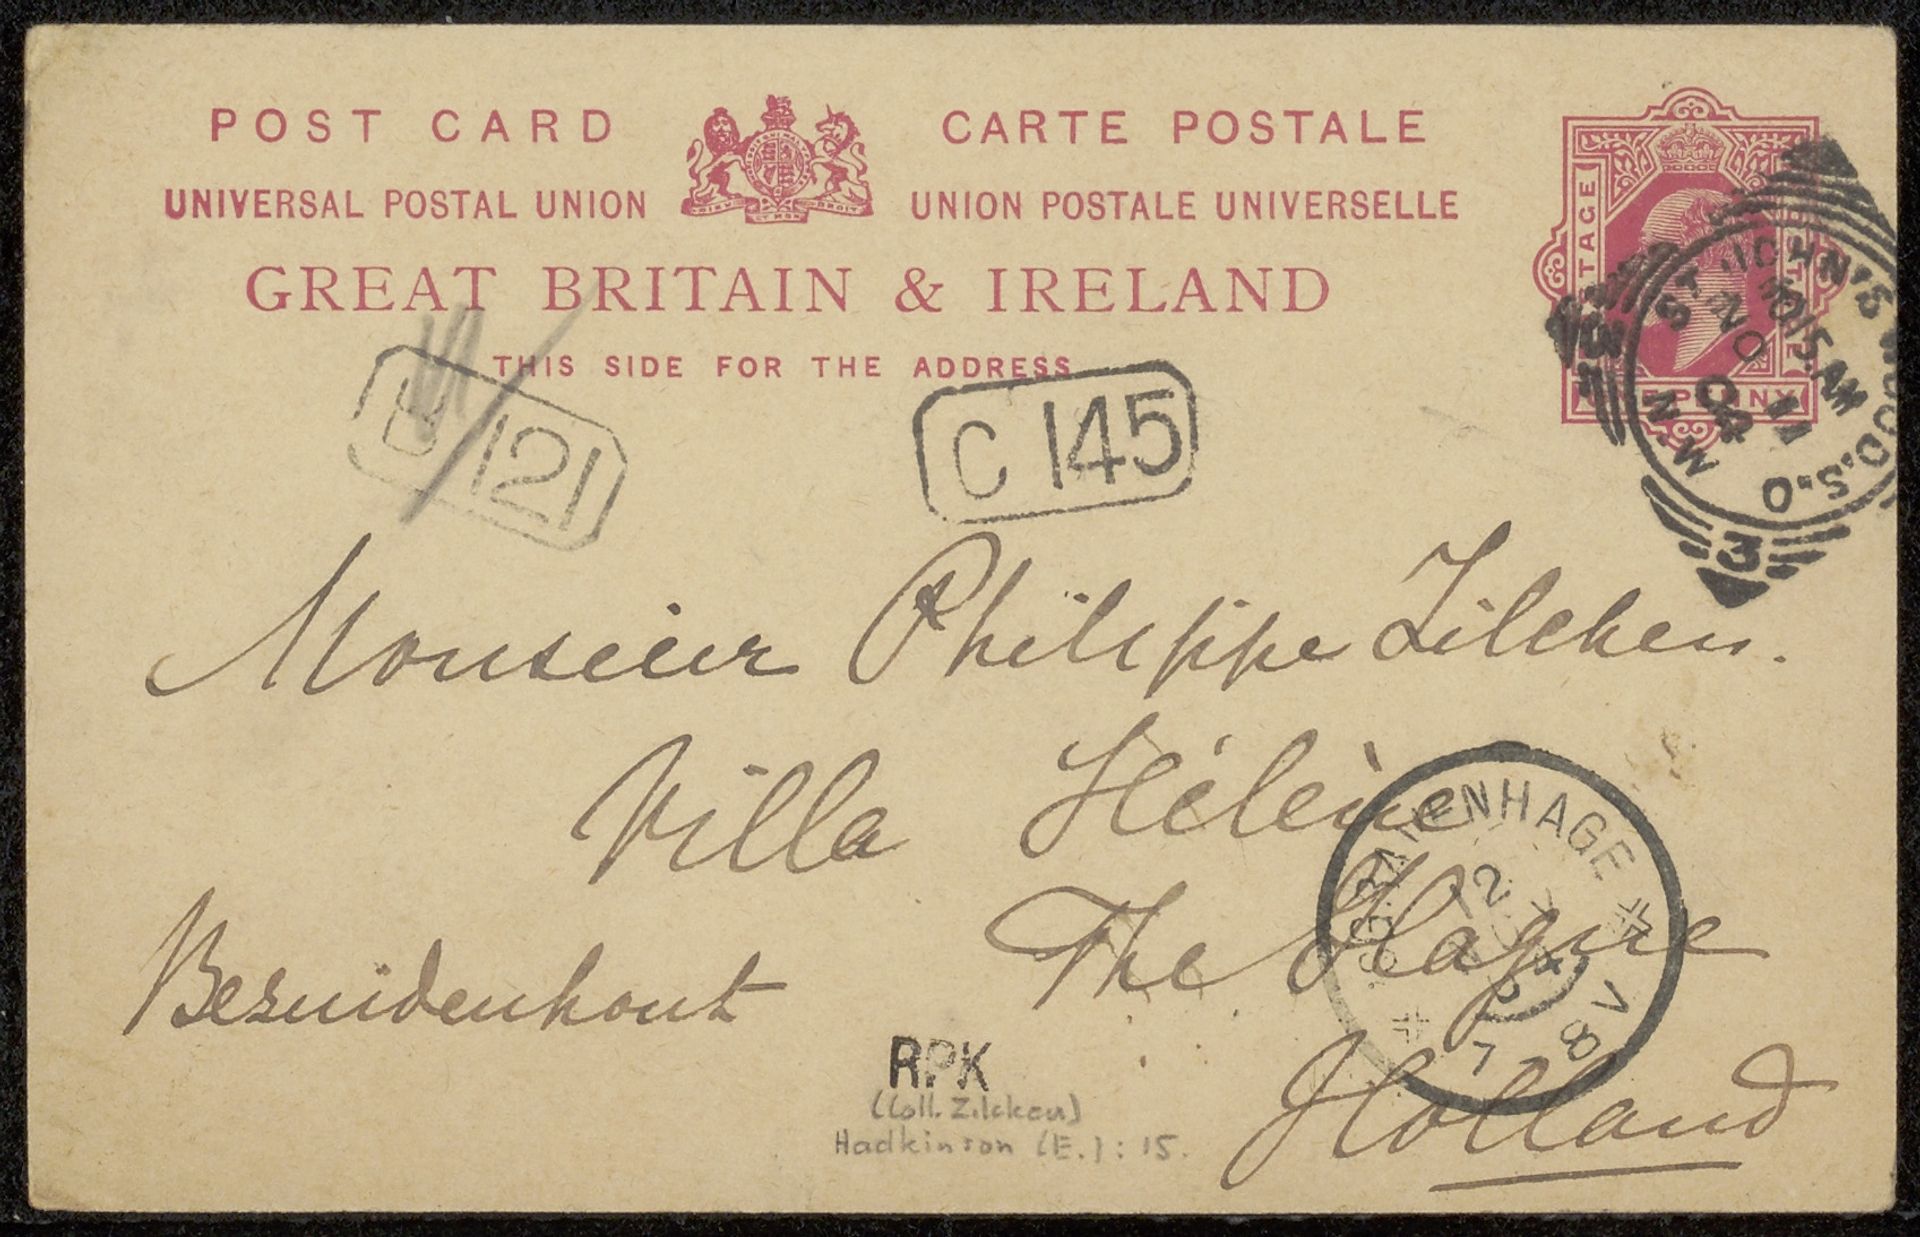 POST CARD CARTE POSTALE
UNIVERSAL POSTAL UNION UNION POSTALE UNIVERSELLE
GREAT BRITAIN & IRELAND
THIS SIDE FOR THE ADDRESS
POSTAGE
ONE PENNY
ST. JOHN'S WOOD.S.O
N.W
10/15.AM
NO 11
04
3
121
C 145
Monsieur Philippe Zilcken.
Villa Hélène
Bezuidenhout The Hague
Holland
'S GRAVENHAGE
12
7 8V
RPK
(Coll. Zilcken)
Hadkinson (E.): 15.